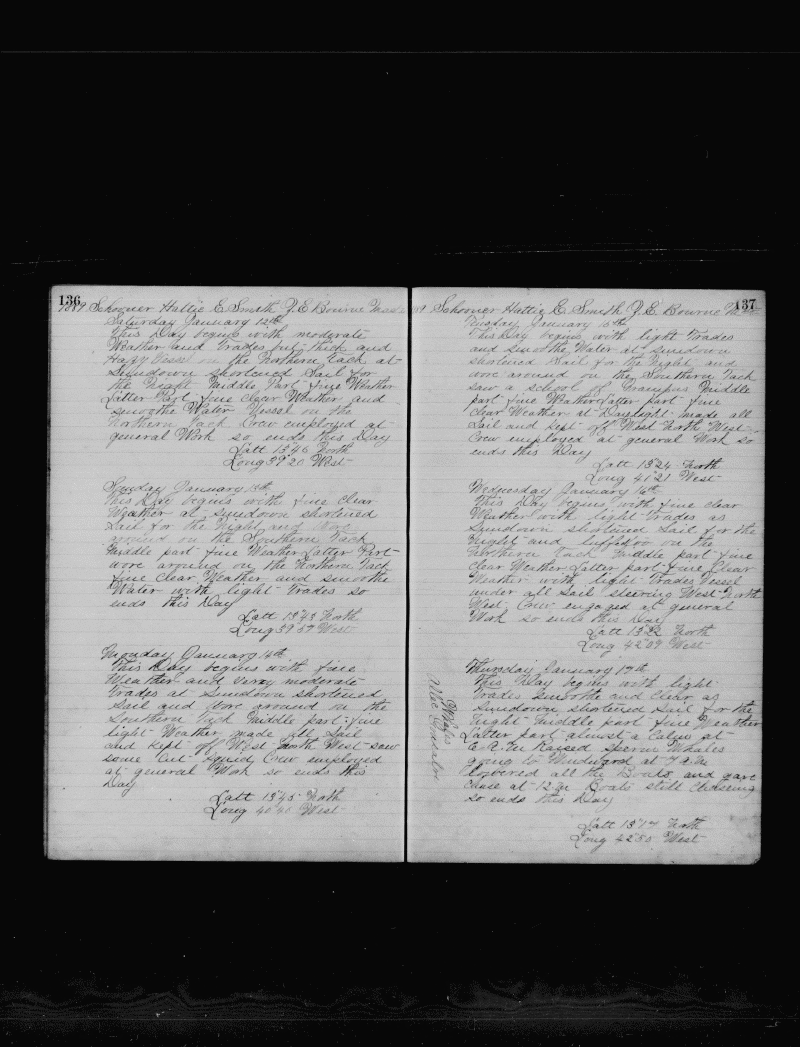 136
1889 Schooner Hattie E. Smith J. E. Bourne
Saturday January 12th
This Day begins with moderate
Weather and Trades but thick and
Hazy Vessel on the Northern Tack at
Sundown shortened Sail for
the Night Middle Part fine Weather
Latter Part fine clear Weather and
smoothe Water Vessel on the
Northern Tack Crew employed at
general Work so ends this Day
Latt 13°45 North
Long 39°20 West
Sunday January 13th
This Day begins with fine clear
Weather at Sundown shortened
Sail for the Night and Wore
around on the Southern Tack
Middle part fine Weather Latter Part
wore around on the Northern Tack
fine clear Weather and smoothe
Water with light Trades so
ends this Day
Latt 13°43 North
Long 39°57 West
Monday January 14th
This Day begins with fine
Weather and very moderate
Trades at Sundown shortened
Sail and Wore around on the
Southern Tack Middle part fine
light Weather made all Sail
and Kept off West North West saw
some Cut Squid Crew employed
at general Work so ends this
Day
Latt 13°45 North
Long 40°41 West
137
1889 Schooner Hattie E. Smith J. E. Bourne
Tuesday January 15th
This Day begins with light Trades
and smoothe Water at Sundown
shortened Sail for the Night and
wore around on the Southern Tack
saw a school of Grampus Middle
part fine Weather Latter part fine
clear Weather at Daylight made all
Sail and Kept off West North West
Crew employed at general Work so
ends this Day
Latt 13°24 North
Long 41°21 West
Wednesday January 16th
This Day begins with fine clear
Weather with light Trades as
Sundown shortened Sail for the
Night and luffed too on the
Northern Tack Middle part fine
clear Weather Latter part fine Clear
Weather with light Trades Vessel
under all Sail steering West North
West Crew engaged at general
Work so ends this Day
Latt 13°22 North
Long 42°09 West
Thursday January 17th
This Day begins with light
Trades Smoothe and Clear as
Sundown shortened Sail for the
Night Middle part fine Weather
Latter part almost a Calm at
6 A.M Raised Sperm Whales
going to Windward at 7 A.M
lowered all the Boats and gave
Chase at 12 M Boats still Chaseing
so ends this Day
Latt 13°17 North
Long 42°50 West
Whales